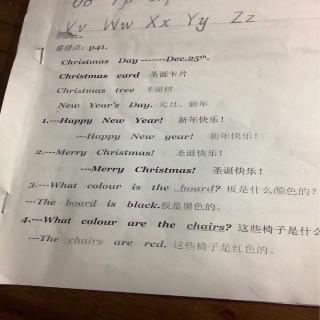 Vv Ww Xx Yy Zz
易错点：p41.
Christmas Day -------Dec.25th.
Christmas card 圣诞卡片
Christmas tree 圣诞树
New Year's Day. 元旦、新年
1.---Happy New Year! 新年快乐！
---Happy New year! 新年快乐！
2.---Merry Christmas! 圣诞快乐！
---Merry Christmas! 圣诞快乐！
3.---What colour is the board? 板是什么颜色的？
---The board is black.板是黑色的。
4.---What colour are the chairs? 这些椅子是什么
---The chairs are red. 这些椅子是红色的。